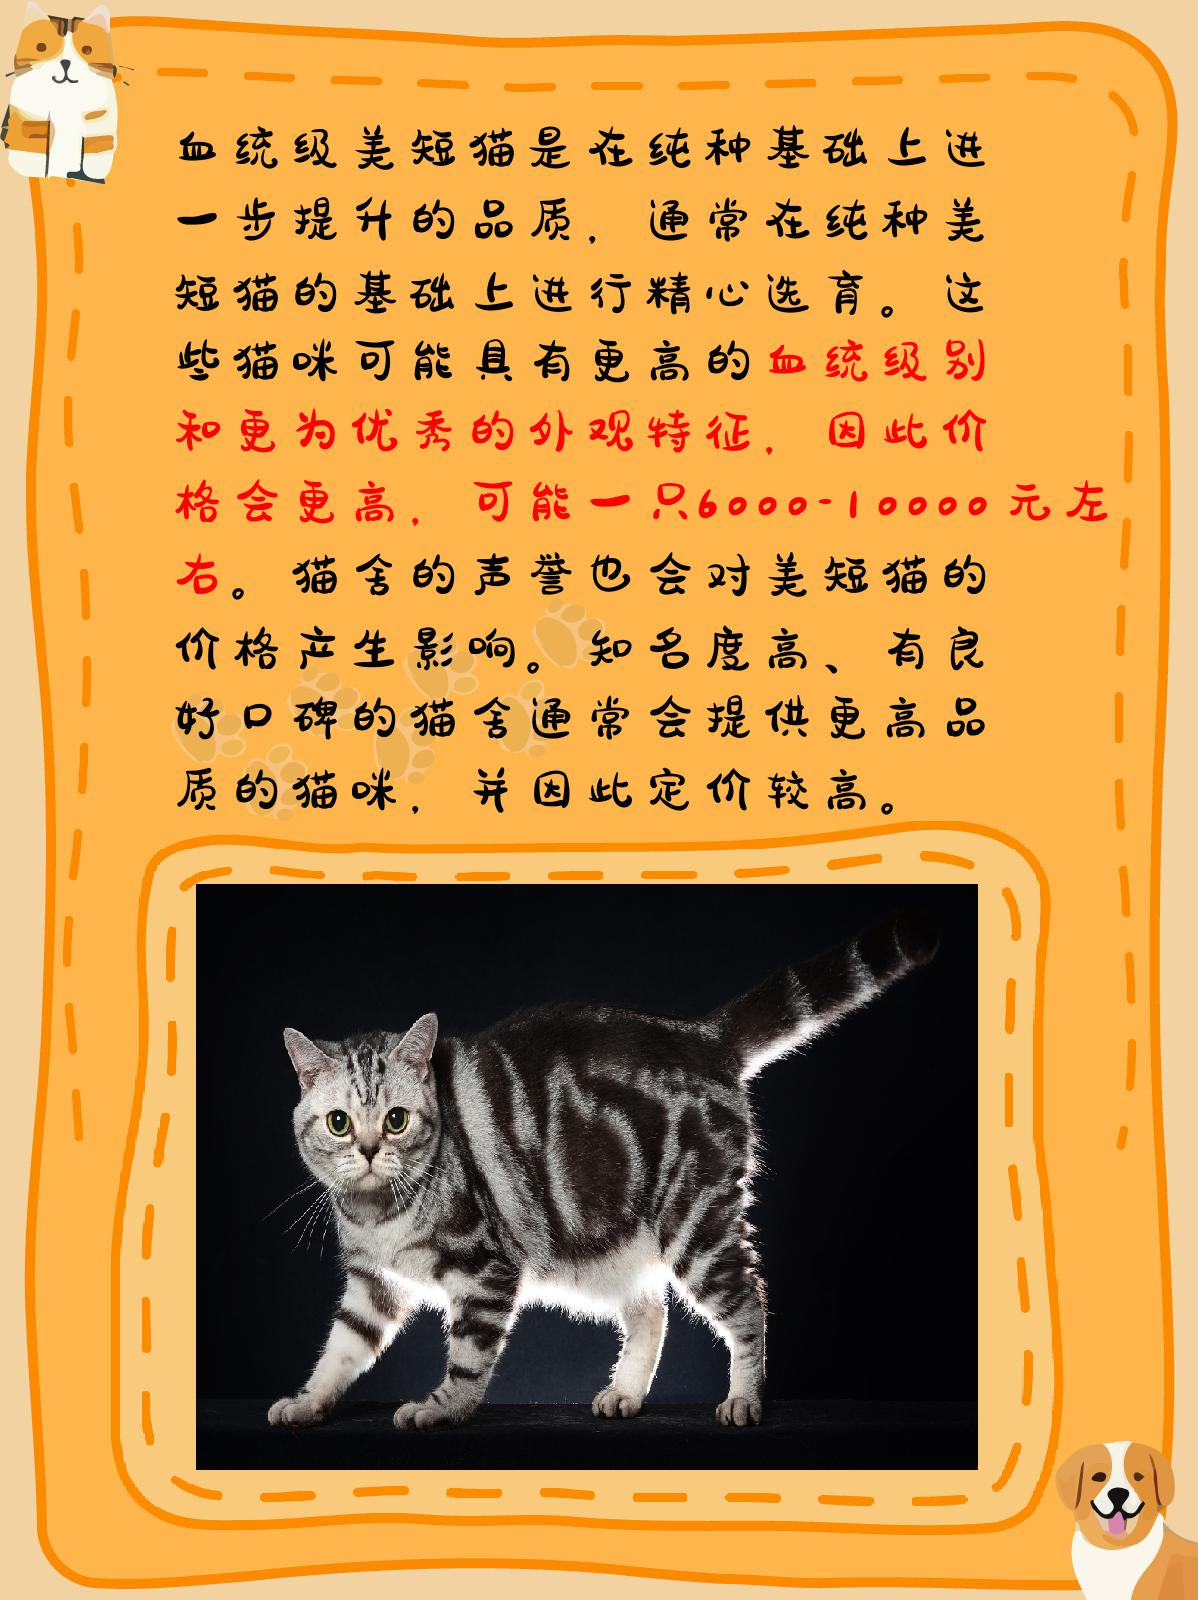 血统级美短猫是在纯种基础上进
一步提升的品质，通常在纯种美
短猫的基础上进行精心选育。这
些猫咪可能具有更高的血统级别
和更为优秀的外观特征，因此价
格会更高，可能一只6000-10000元左
右。猫舍的声誉也会对美短猫的
价格产生影响。知名度高、有良
好口碑的猫舍通常会提供更高品
质的猫咪，并因此定价较高。